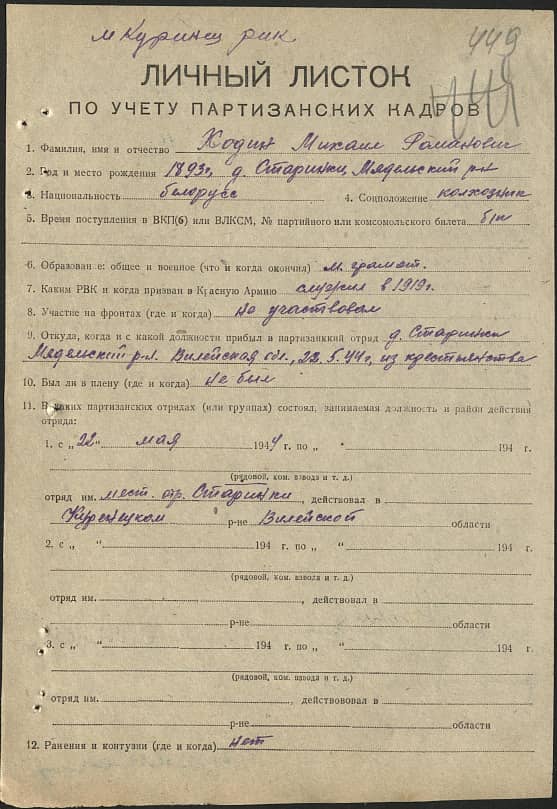 м Куринец рик
449
ЛИЧНЫЙ ЛИСТОК
ПО УЧЕТУ ПАРТИЗАНСКИХ КАДРОВ
1. Фамилия, имя и отчество Ходин Михаил Романович
2. Год и место рождения 1893г, д. Старинки, Мядельский р-н
3. Национальность белорусс 4. Соцположение колхозник
5. Время поступления в ВКП(б) или ВЛКСМ, № партийного или комсомольского билета б/п
6. Образование: общее и военное (что и когда окончил) м. грамот.
7. Каким РВК и когда призван в Красную Армию служил в 1919г.
8. Участие на фронтах (где и когда) не участвовал
9. Откуда, когда и с какой должности прибыл в партизанский отряд д. Старинки
Мядельский р-н. Вилейская обл., 22.5.44г, из крестьянства
10. Был ли в плену (где и когда) не был
11. В каких партизанских отрядах (или группах) состоял, занимаемая должность и район действия
отряда:
1. с „22" мая 1944 г. по „ " 194 г.
(рядовой, ком. взвода и т. д.)
отряд им. мест. отр. Старинки, действовал в
Куренецком р-не Вилейской области
2. с „ " 194 г. по „ " 194 г.
(рядовой, ком. взвода и т. д.)
отряд им. , действовал в
р-не области
3. с „ " 194 г. по „ " 194 г.
(рядовой, ком. взвода и т. д.)
отряд им. , действовал в
р-не области
12. Ранения и контузии (где и когда) нет